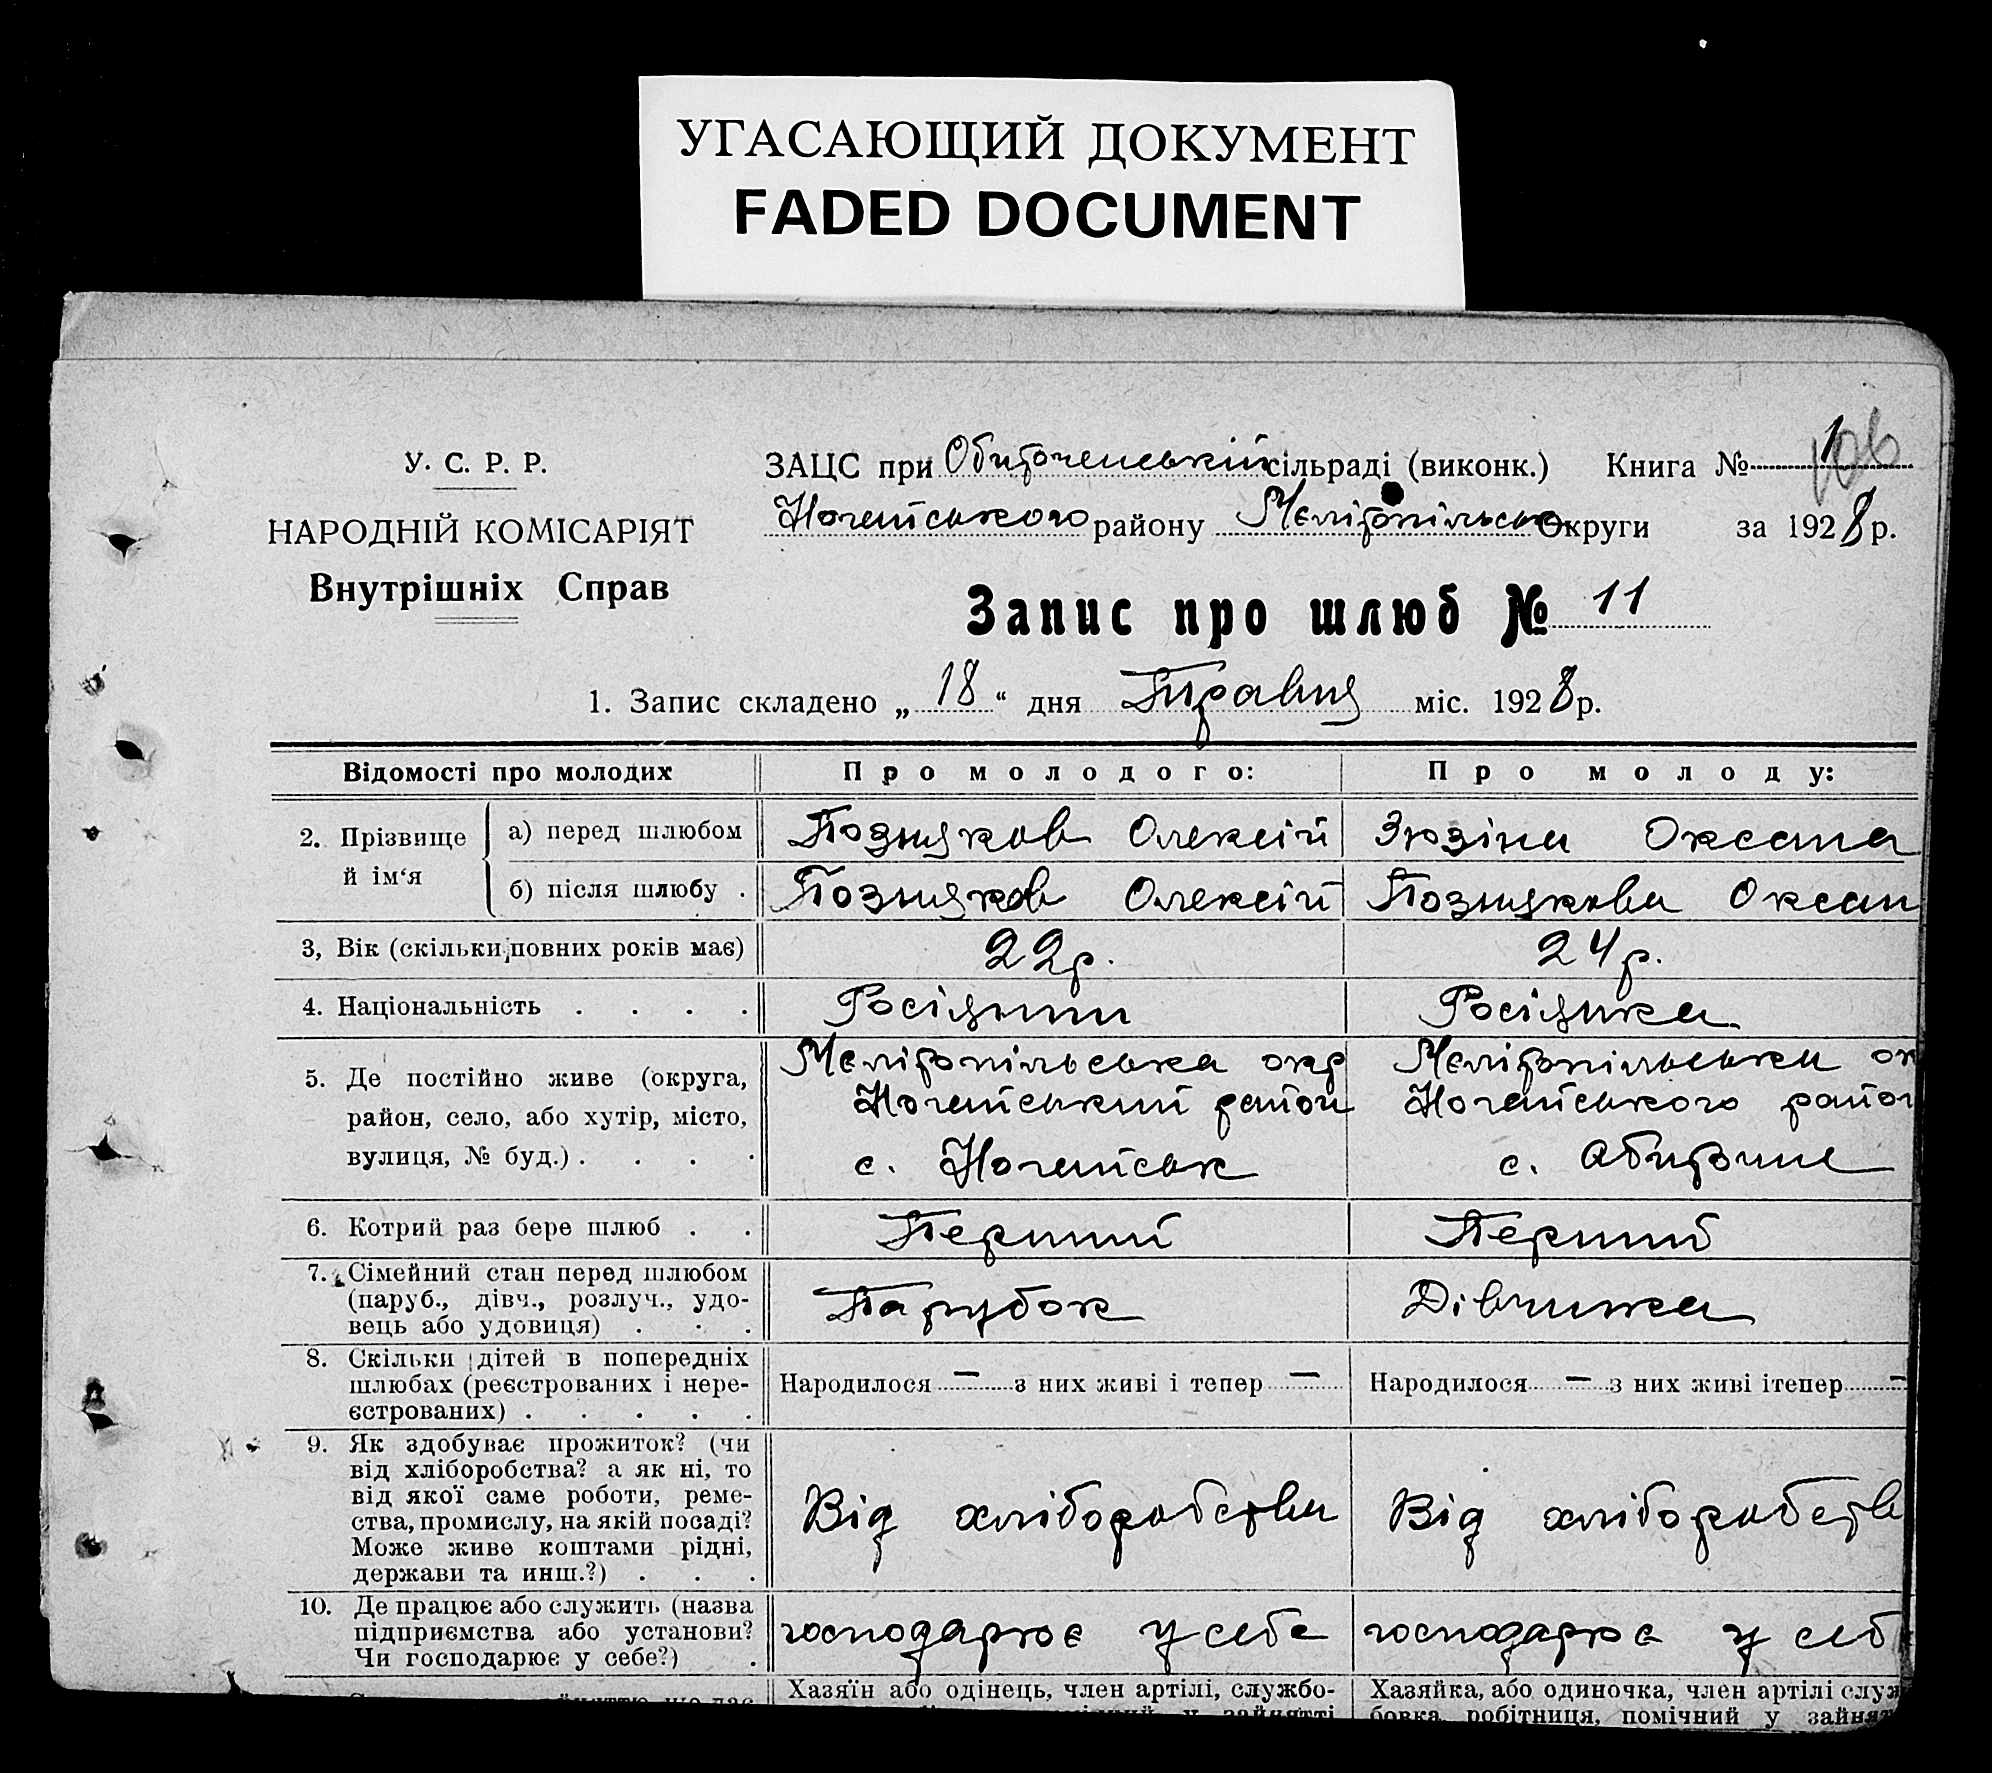 УГАСАЮЩИЙ ДОКУМЕНТ
FADED DOCUMENT
У. С. Р. Р.
НАРОДНІЙ КОМІСАРІЯТ
Внутрішніх Справ
ЗАЦС при Обиточенській сільраді (виконк.) Книга № 1
106
Ногайського району Меліτопільськ Округи за 1928 р.
Запис про шлюб № 11
1. Запис складено „ 18 “ дня Травня міс. 1928 р.
Відомості про молодих Про молодого: Про молоду:
2. Прізвище й ім‘я
а) перед шлюбом Позняков Олексій Зюзіна Оксана
б) після шлюбу . Позняков Олексій Познякова Оксан
3, Вік (скільки повних років має) 22 р. 24 р.
4. Національність . . . . Росіянин Росіянка
5. Де постійно живе (округа,
район, село, або хутір, місто,
вулиця, № буд.) . . . .
Мелітопільська окр
Ногайський район
с. Ногайськ
Мелітопільськи ок
Ногайського район
с.
6. Котрий раз бере шлюб . . Перший Перший
7. Сімейний стан перед шлюбом
(паруб., дівч., розлуч., удо-
вець або удовиця) . . .
Парубок Дівчинка
8. Скільки дітей в попередніх
шлюбах (реєстрованих і нере-
єстрованих) . . . . .
Народилося — з них живі і тепер — Народилося — з них живі ітепер —
9. Як здобуває прожиток? (чи
від хліборобства? а як ні, то
від якої саме роботи, реме-
ства, промислу, на якій посаді?
Може живе коштами рідні,
держави та инш.?) . . .
Від хліборобства Від хліборобств
10. Де працює або служить (назва
підприємства або установи?
Чи господарює у себе?) .
господарює у себе господарює у себ
Хазяїн або одінець, член артілі, службо- Хазяйка, або одиночка, член артілі служ
бовка, робітниця, помічний у зайнят